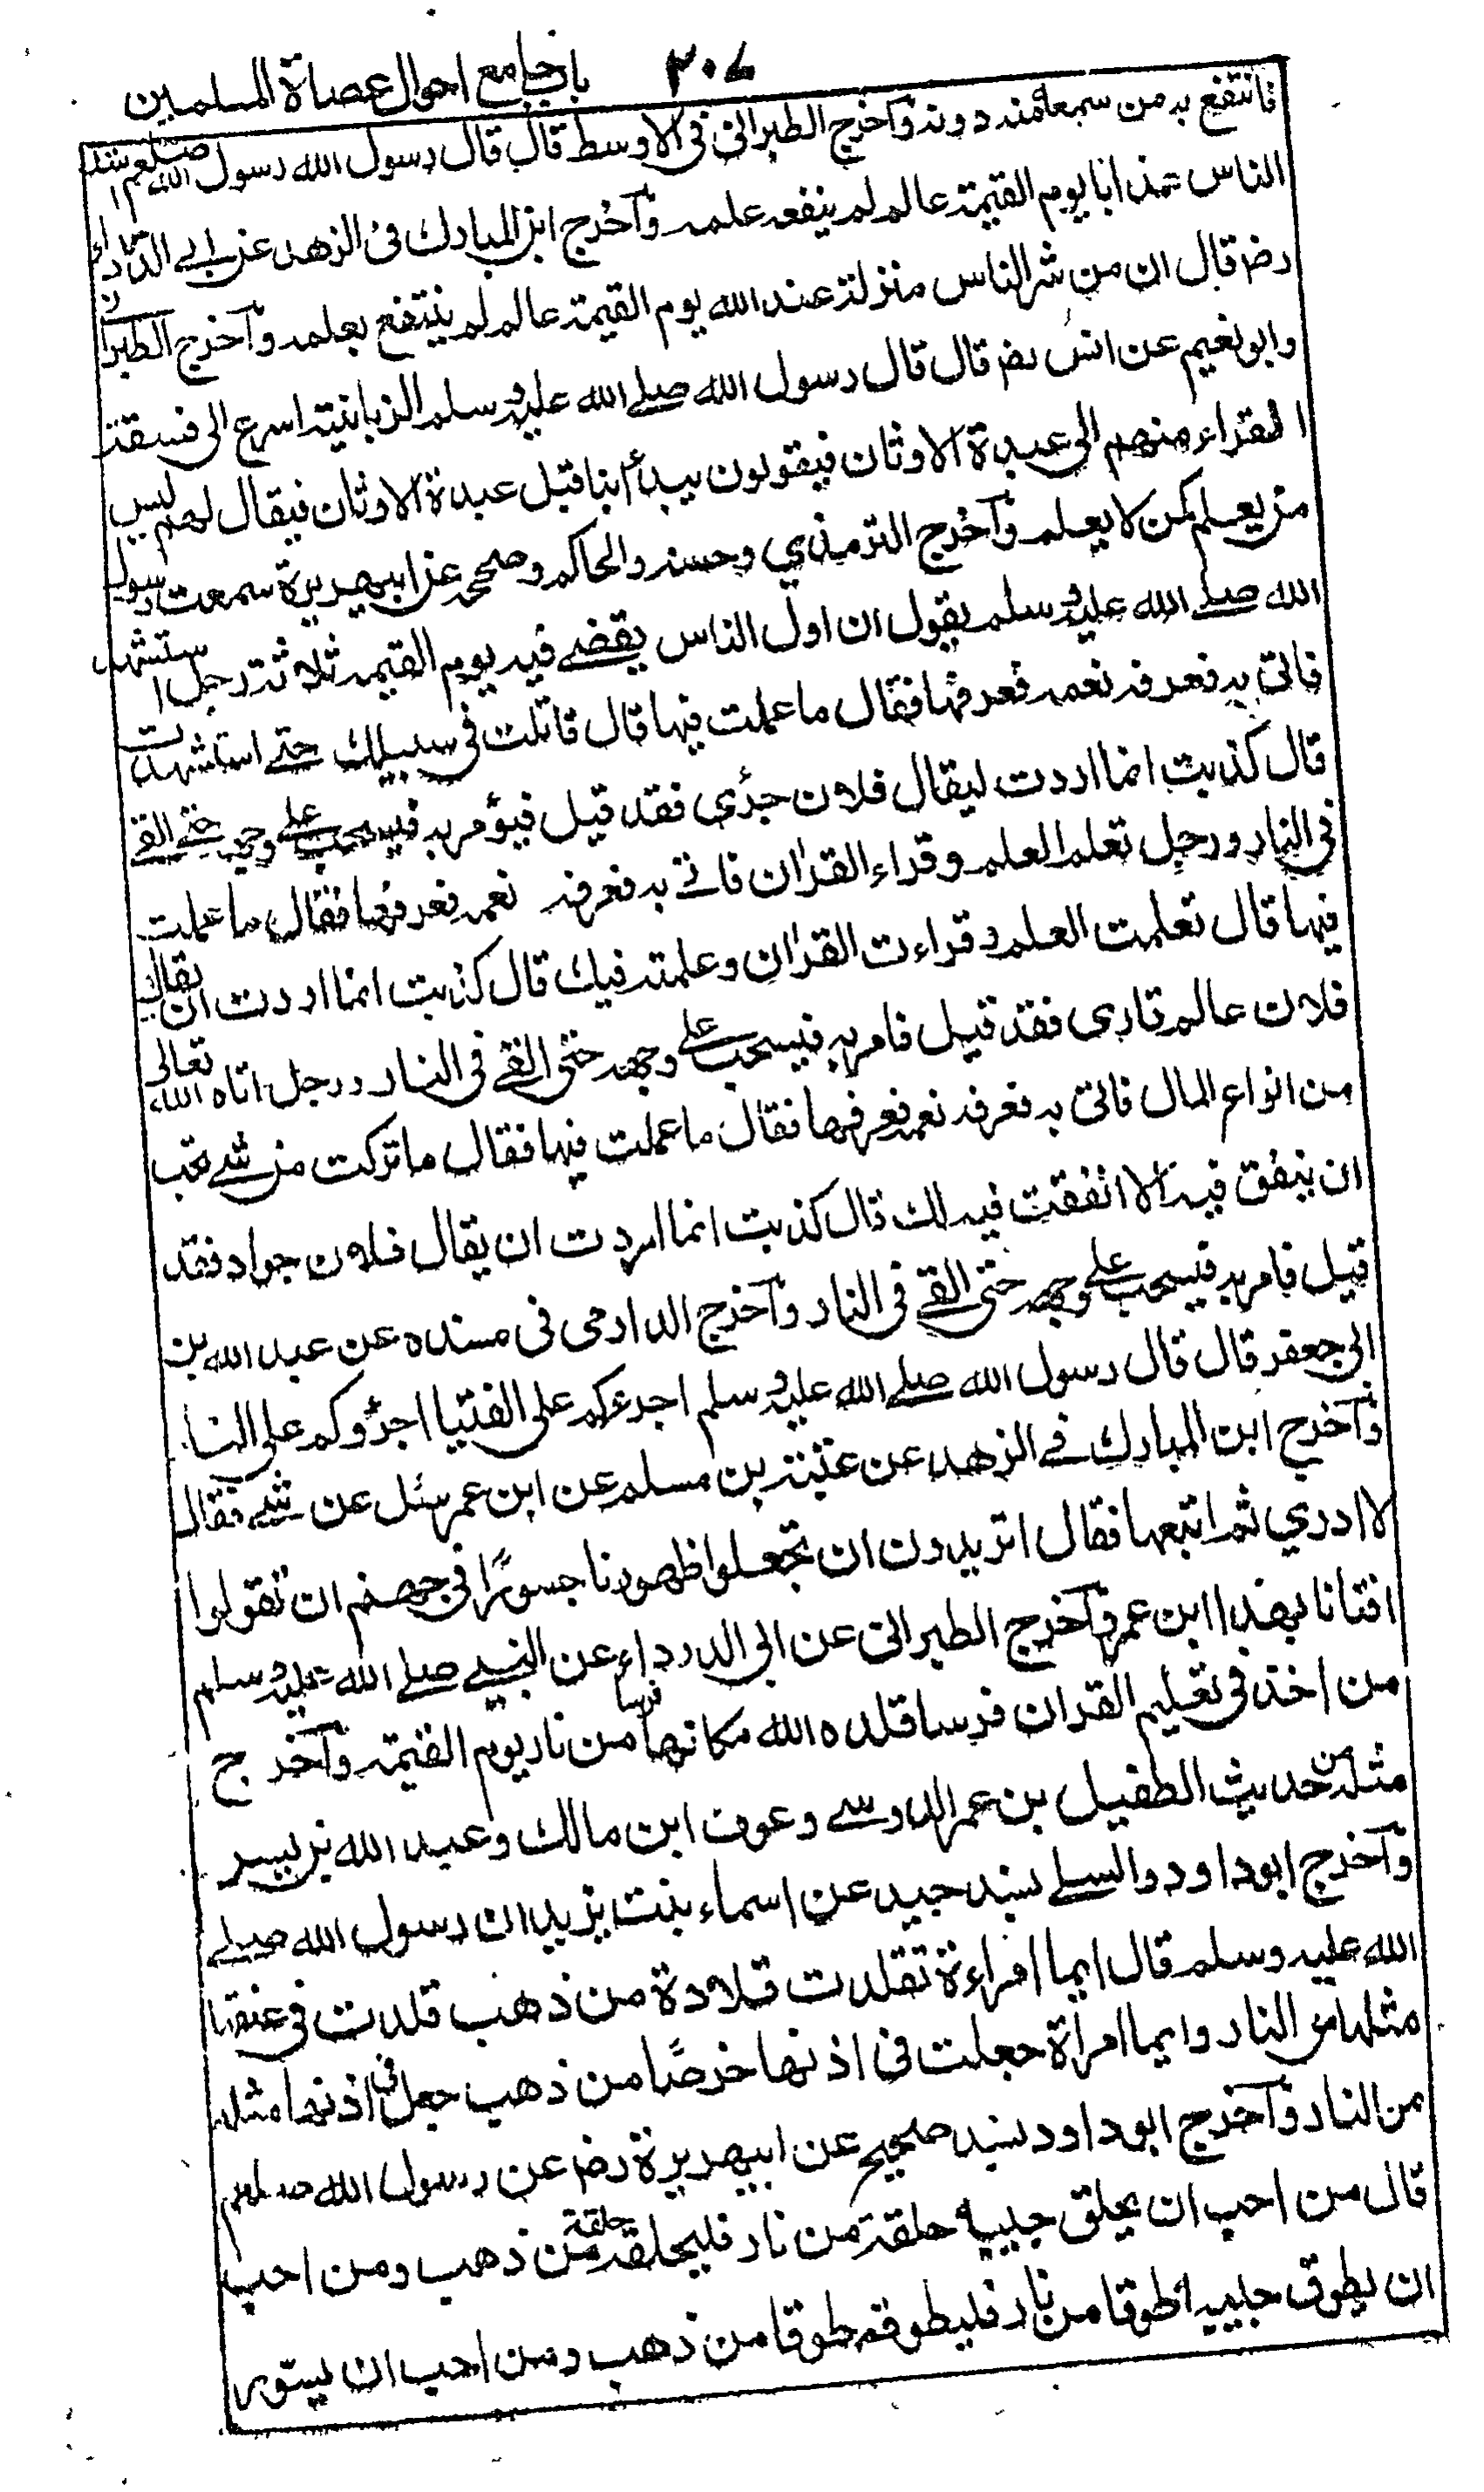 باب جامع احوال عصاة المسلمين ٣٠٧
فانتفع به من سمعه منه دونه وآخرج الطبرانى فى الاوسط قال قال رسول الله رسول الله صلعم اشد
الناس عذابا يوم القيمة عالم لم ينفعه علمه وآخرج ابن المبارك فى الزهد عن ابى الدرداء
رضم قال ان من شر الناس منزلة عند الله يوم القيمة عالم لم ينتفع بعلمه وآخرج الطبرانى
وابو نعيم عن انس رضم قال قال رسول الله صلے الله عليه وسلم الزبانية اسرع الى فسقة
القراء منهم الى عبدة الاوثان فيقولون يبدأ بنا قبل عبدة الاوثان فيقال لهم ليس
من يعلم كمن لا يعلم وآخرج الترمذي وحسنه والحاكم وصححه عن ابيهريرة سمعت رسول
الله صلے الله عليه وسلم يقول ان اول الناس يقضے فيه يوم القيمة ثلاثة رجل استشهد
فاتى به فعرفه نعمه فعرفها فقال ما عملت فيها قال قاتلت فى سبيلك حتے استشهدت
قال كذبت انما اردت ليقال فلان جرئ فقد قيل فيؤمر به فيسحب علے وجهه حتے القے
فى النار ورجل تعلم العلم وقراء القرٰان فاتے به فعرفه نعمه فعرفها فقال ما عملت
فيها قال تعلمت العلم وقراءت القرٰان وعلمته فيك قال كذبت انما اردت ان يقال
فلان عالم قارى فقد قيل فامر به فيسحب علے وجهه حتى القے فى النار ورجل اتاه الله تعالى
من انواع المال فاتى به فعرفه نعمه فعرفها فقال ما عملت فيها فقال ما تركت من شے تحب
ان ينفق فيه الا انفقت فيه لك قال كذبت انما اردت ان يقال فلان جواد فقد
قيل فامر به فيسحب علے وجهه حتى القے فى النار وآخرج الدارمى فى مسنده عن عبد الله بن
ابى جعفر قال قال رسول الله صلے الله عليه وسلم اجرءكم على الفتيا اجرؤكم على النا
وآخرج ابن المبارك فے الزهد عن عقبة بن مسلم عن ابن عمر سئل عن شے فقال
لا ادري ثم اتبعها فقال اتريدون ان تجعلوا ظهورنا جسورًا فى جهنم ان تقولوا
افتانا بهذا ابن عمر وآخرج الطبرانى عن ابى الدرداء عن النبے صلے الله عليه وسلم
من اخذ فى تعليم القران فرسا قلده الله مكانها فرسا من نار يوم القيمة وآخرج
مثله من حديث الطفيل بن عمر الدوسے وعوف ابن مالك وعبد الله بن بسر
وآخرج ابو داود والسلے بسند جيد عن اسماء بنت يزيد ان رسول الله صلے
الله عليه وسلم قال ايما امراءة تقلدت قلادة من ذهب قلدت فى عنقها
مثلها من النار وايما امراة جعلت فى اذنها خرصًا من ذهب جعل فى اذنها مثله
من النار وآخرج ابو داود بسند صحيح عن ابيهريرة رضم عن رسول الله صلعم
قال من احب ان يحلق حبيبه حلقة من نار فليحلقه حلقة من ذهب ومن احب
ان يطوق حبيبه طوقا من نار فليطوقه طوقا من ذهب ومن احب ان يسور